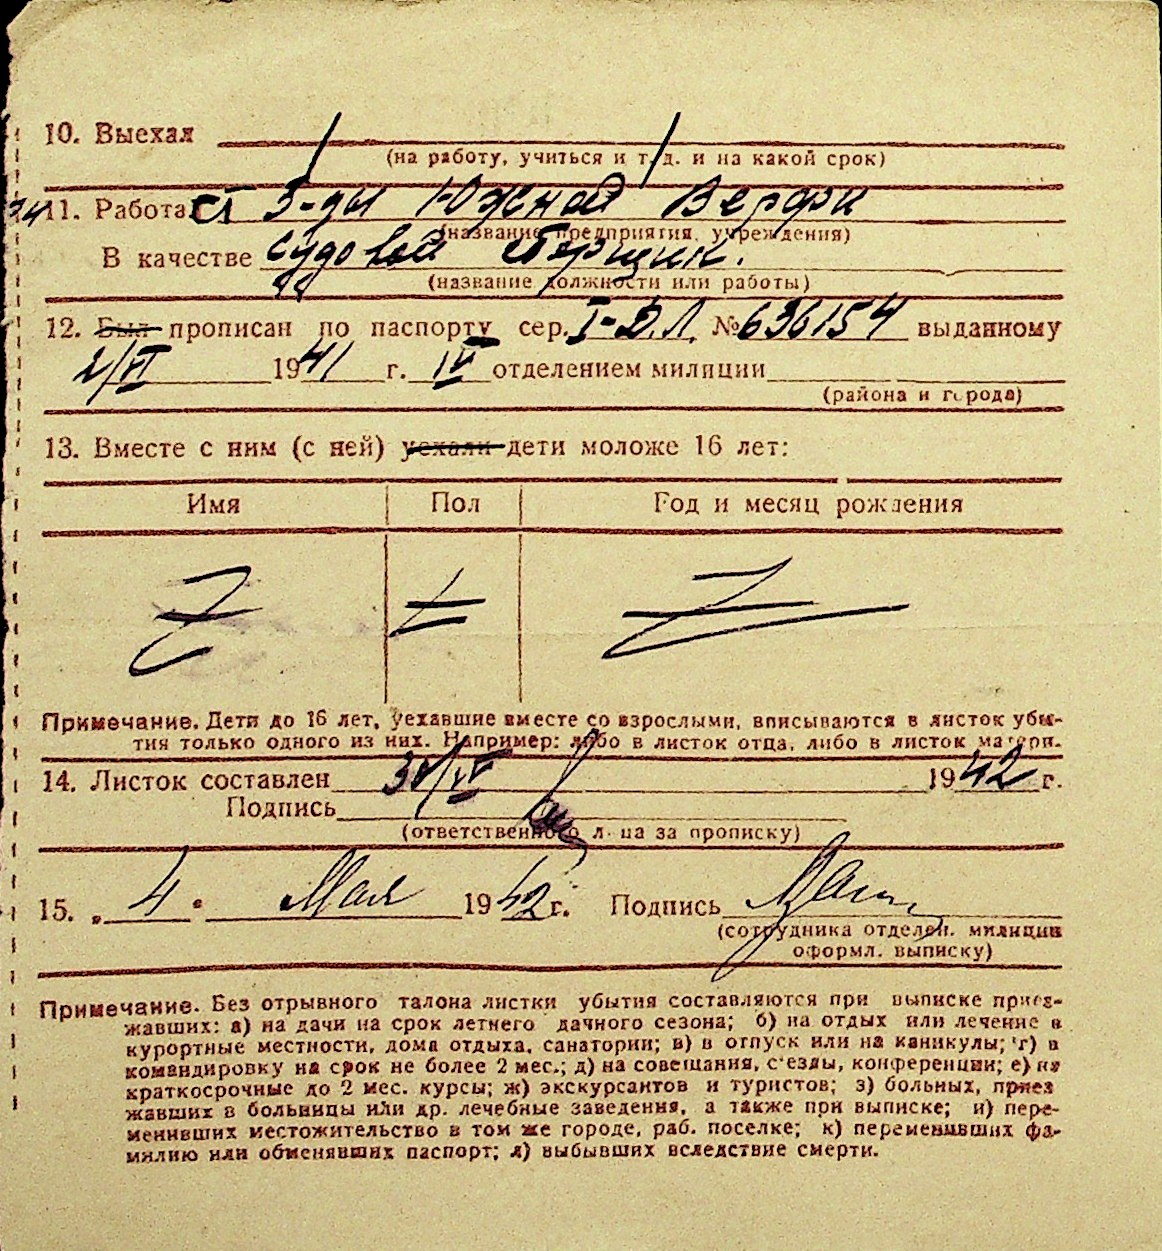 10. Выехал
(на работу, учиться и т. д. и на какой срок)
11. Работа ст З-ды Южной Верфи
(название предприятия, учреждения)
В качестве судовой сборщик.
(название должности или работы)
12. Был прописан по паспорту сер. I-Д.Л. № 636154 выданному
2/VI 1941 г. IV отделением милиции
(района и города)
13. Вместе с ним (с ней) уехали дети моложе 16 лет:
Имя Пол Год и месяц рождения
Примечание. Дети до 16 лет, уехавшие вместе со взрослыми, вписываются в листок убы-
тия только одного из них. Например: либо в листок отца, либо в листок матери.
14. Листок составлен 30/IV 1942 г.
Подпись
(ответственного лица за прописку)
15. „ 4 " Мая 1942 г. Подпись
(сотрудника отделен. милиции
оформл. выписку)
Примечание. Без отрывного талона листки убытия составляются при выписке приез-
жавших: а) на дачи на срок летнего дачного сезона; б) на отдых или лечение в
курортные местности, дома отдыха, санатории; в) в отпуск или на каникулы; г) в
командировку на срок не более 2 мес.; д) на совещания, с'езды, конференции; е) на
краткосрочные до 2 мес. курсы; ж) экскурсантов и туристов; з) больных, приез
жавших в больницы или др. лечебные заведения, а также при выписке; и) пере-
менивших местожительство в том же городе, раб. поселке; к) переменивших фа-
милию или обменявших паспорт; л) выбывших вследствие смерти.